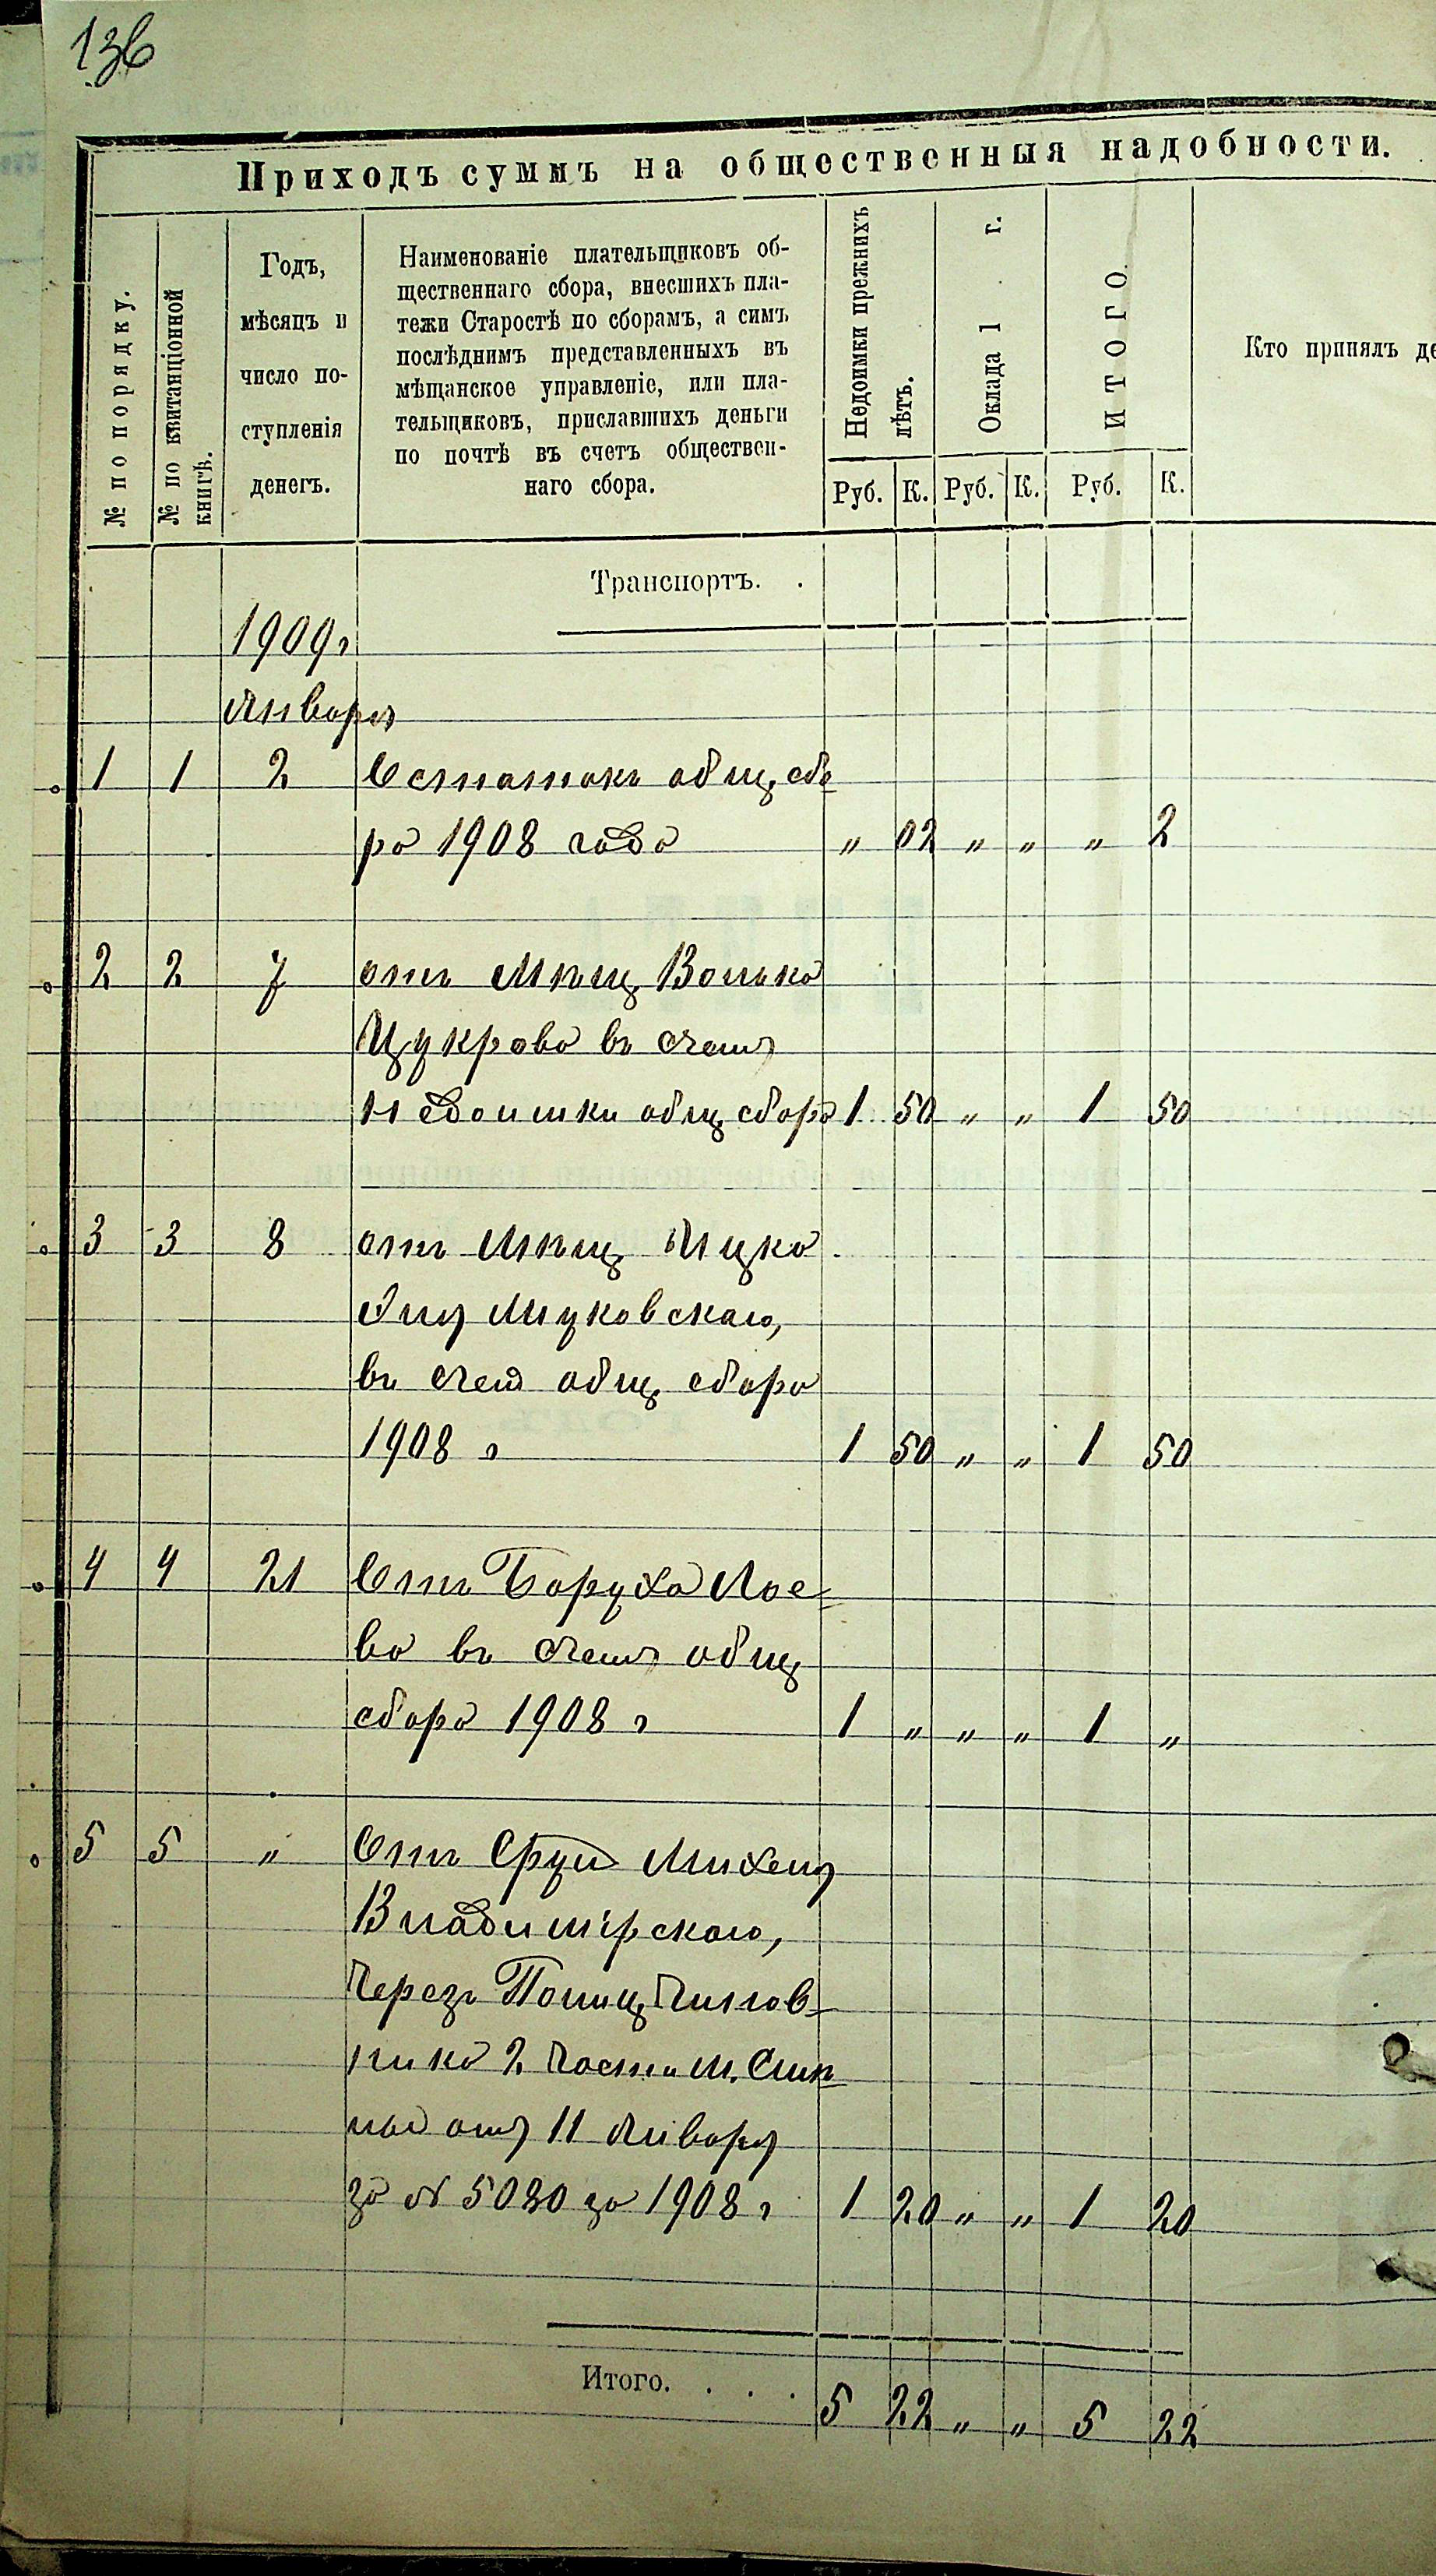 136
Приходъ суммъ на общественныя надобности.
№ по порядку.
№ по квитанціонной
книгѣ.
Годъ,
мѣсяцъ и
число по-
ступленія
денегъ.
Наименованіе плательщиковъ об-
щественнаго сбора, внесшихъ пла-
тежи Старостѣ по сборамъ, а симъ
послѣднимъ представленныхъ въ
мѣщанское управленіе, или пла-
тельщиковъ, приславшихъ деньги
по почтѣ въ счетъ обществен-
наго сбора.
Недоимки прежнихъ
лѣтъ.
Оклада 1 г.
ИТОГО.
Кто принялъ де
Руб. К. Руб. К. Руб. К.
Транспортъ. .
1909 г
Января
1 1 2 Остатокъ общ, сбо
ра 1908 года " 02 " " " 2
2 2 7 отъ Мѣщ, Волька
Цукрова въ счетъ
Недоимки общ, сбора 1 50 " " 1 50
3 3 8 отъ Мѣщ, Ицка
Мицковскаго,
въ счет общ, сбора
1908 г 1 50 " " 1 50
4 4 21 Отъ Боруха Лое-
ва въ счетъ общ,
сбора 1908 г 1 " " " 1 "
5 5 " Отъ Сруля Михеля
Владимірскаго,
Черезъ Полиц, Чинов-
ника 2 части м. Смѣ
лы отъ 11 Января
за № 5080 за 1908 г 1 20 " " 1 20
Итого. . . . 5 22 " " 5 22